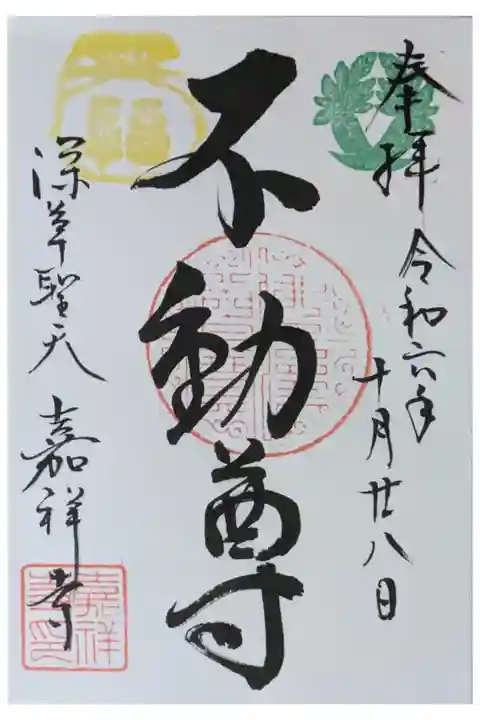 奉拝 令和六年
十月廿八日
不動尊
深草聖天 嘉祥寺
福
嘉祥
寺印